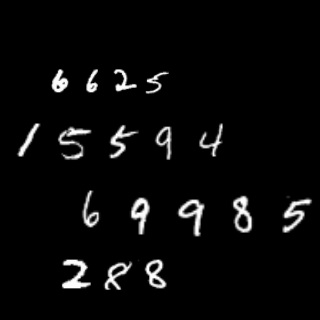 6625
15594
69985
288